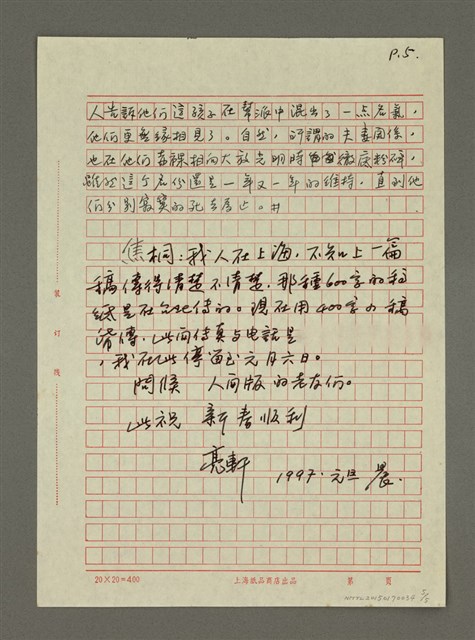 P.5.
人告訴他們這孩子在幫派中混出了一点名氣,
他們更無緣相見了。自此,所謂的夫妻関係,
也在他們赤裸相向大放光明時徹底粉碎,
雖然這个名份還是一年又一年的維持,直到他
們分別寂寞的死去為止。#
焦桐:我人在上海,不知上一篇
稿傳得清楚不清楚,那種600字的稿
紙是在台北傳的。現在用400字的稿
紙傳,此間傳真与电話是
,我在此停留至元月六日。
問候 人间版的老友们。
此祝 新春順利
亮軒 1997.元旦 晨.
装 订 线
20×20=400 上海纸品商店出品 第 頁
5/5